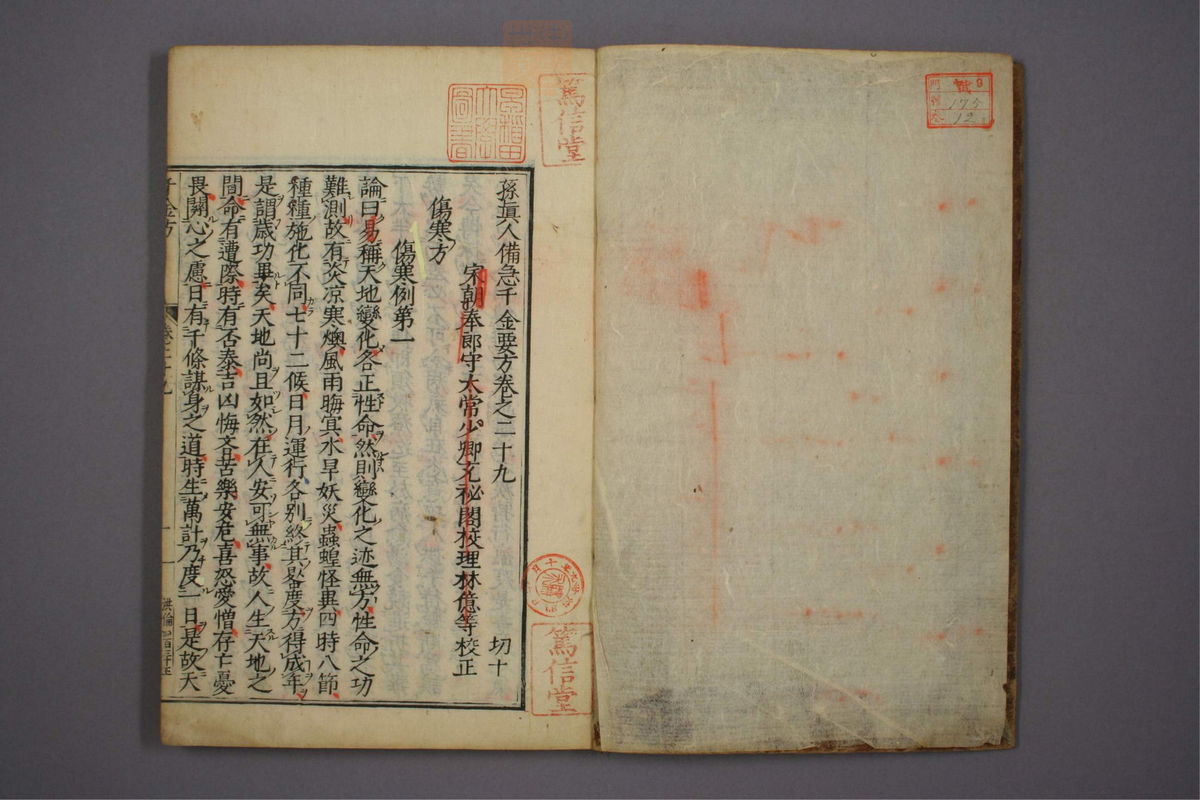 孫眞人備急千金要方卷之二十九
切十
宋朝奉郎守太常少卿充祕閣校理林億等校正
傷寒方
傷寒例第一
論曰易稱天地變化各正性命然則變化之迹無方性命之功
難測故有炎凉寒燠風雨晦冥水旱妖災蟲蝗怪異四時八節
種種施化不同七十二候日月運行各別終其晷度方得成年
是謂歳功畢矣天地尚且如然在人安可無事故人生天地之
間命有遭際時有否泰吉凶悔吝苦樂安危喜怒愛憎存亡憂
畏關心之慮日有千條謀身之道時生萬計乃度一日是故天
千金方
卷二十九
一
篤信堂
篤信堂
門
號
卷
175
12